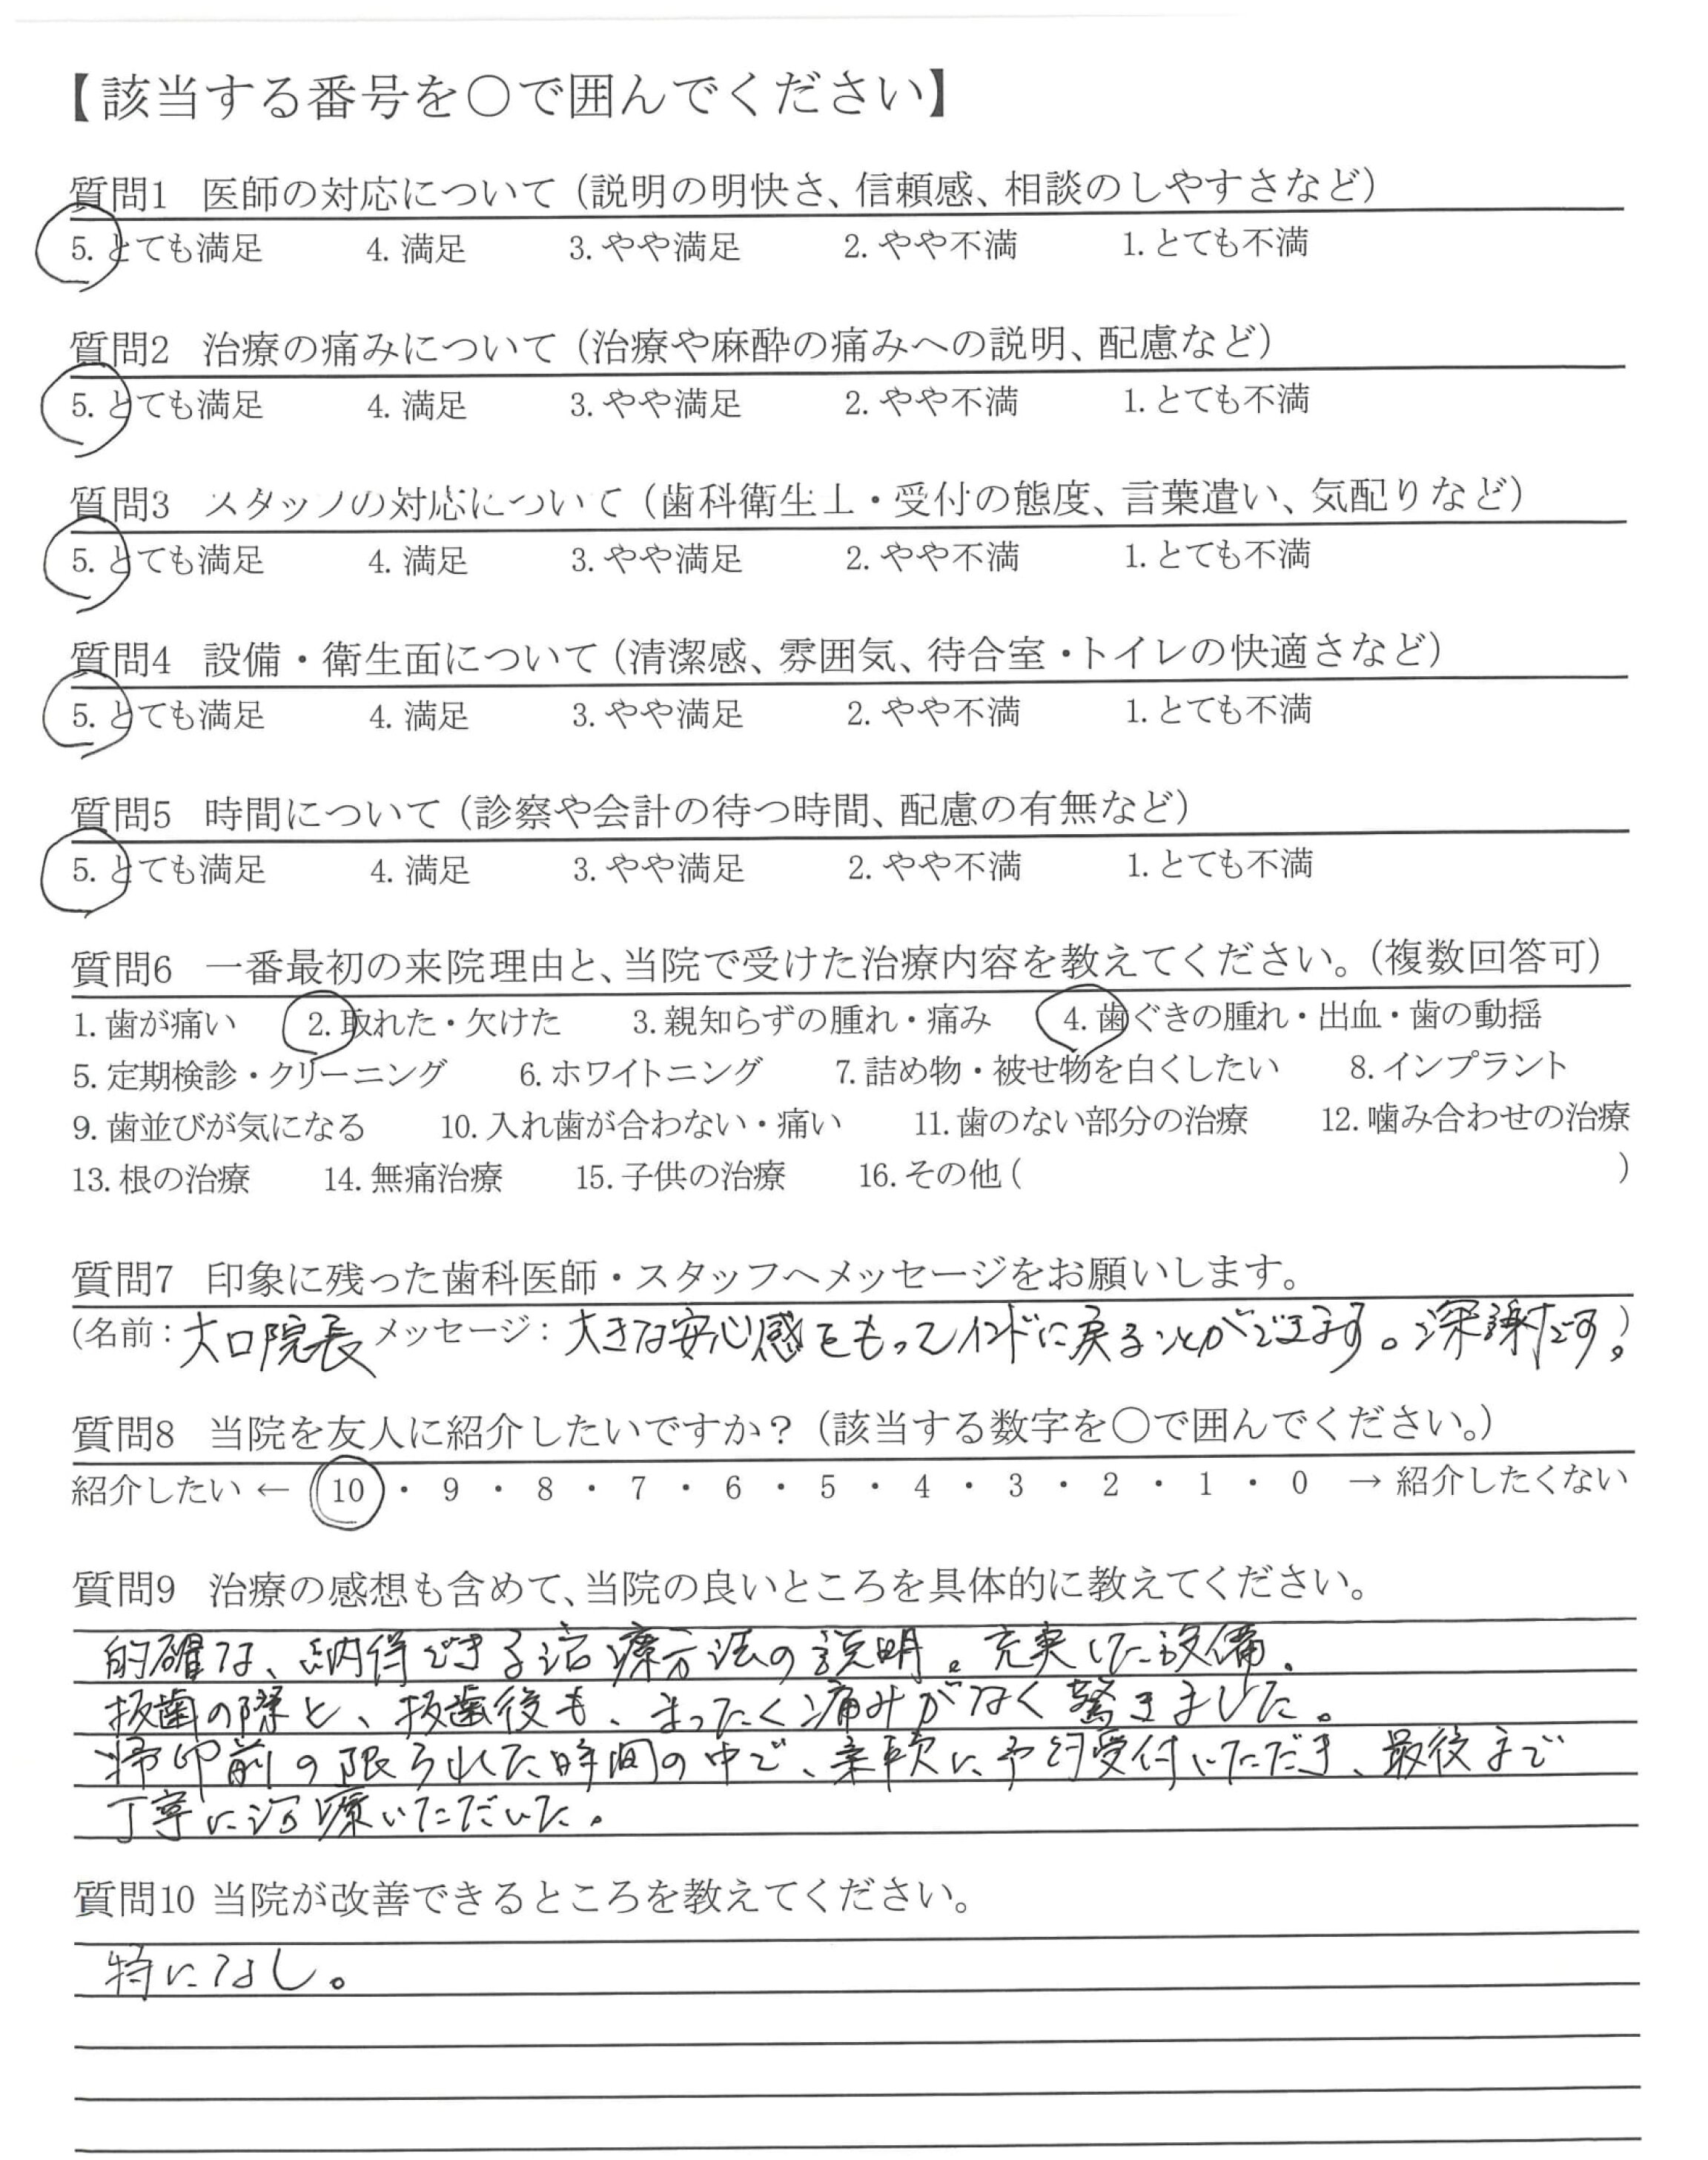 【該当する番号を○で囲んでください】
質問1 医師の対応について（説明の明快さ、信頼感、相談のしやすさなど）
5. とても満足 4. 満足 3. やや満足 2. やや不満 1. とても不満
質問2 治療の痛みについて（治療や麻酔の痛みへの説明、配慮など）
5. とても満足 4. 満足 3. やや満足 2. やや不満 1. とても不満
質問3 スタッフの対応について（歯科衛生士・受付の態度、言葉遣い、気配りなど）
5. とても満足 4. 満足 3. やや満足 2. やや不満 1. とても不満
質問4 設備・衛生面について（清潔感、雰囲気、待合室・トイレの快適さなど）
5. とても満足 4. 満足 3. やや満足 2. やや不満 1. とても不満
質問5 時間について（診察や会計の待つ時間、配慮の有無など）
5. とても満足 4. 満足 3. やや満足 2. やや不満 1. とても不満
質問6 一番最初の来院理由と、当院で受けた治療内容を教えてください。（複数回答可）
1. 歯が痛い 2. 取れた・欠けた 3. 親知らずの腫れ・痛み 4. 歯ぐきの腫れ・出血・歯の動揺
5. 定期検診・クリーニング 6. ホワイトニング 7. 詰め物・被せ物を白くしたい 8. インプラント
9. 歯並びが気になる 10. 入れ歯が合わない・痛い 11. 歯のない部分の治療 12. 噛み合わせの治療
13. 根の治療 14. 無痛治療 15. 子供の治療 16. その他（ ）
質問7 印象に残った歯科医師・スタッフへメッセージをお願いします。
（名前：大口院長 メッセージ：大きな安心感をもってインドに戻ることができます。深謝です。）
質問8 当院を友人に紹介したいですか？（該当する数字を○で囲んでください。）
紹介したい ← 10 ・ 9 ・ 8 ・ 7 ・ 6 ・ 5 ・ 4 ・ 3 ・ 2 ・ 1 ・ 0 → 紹介したくない
質問9 治療の感想も含めて、当院の良いところを具体的に教えてください。
的確な、納得できる治療方法の説明。充実した設備。
抜歯の際と、抜歯後も、まったく痛みがなく驚きました。
帰印前の限られた時間の中で、柔軟に予約受付いただき、最後まで
丁寧に治療いただいた。
質問10 当院が改善できるところを教えてください。
特になし。